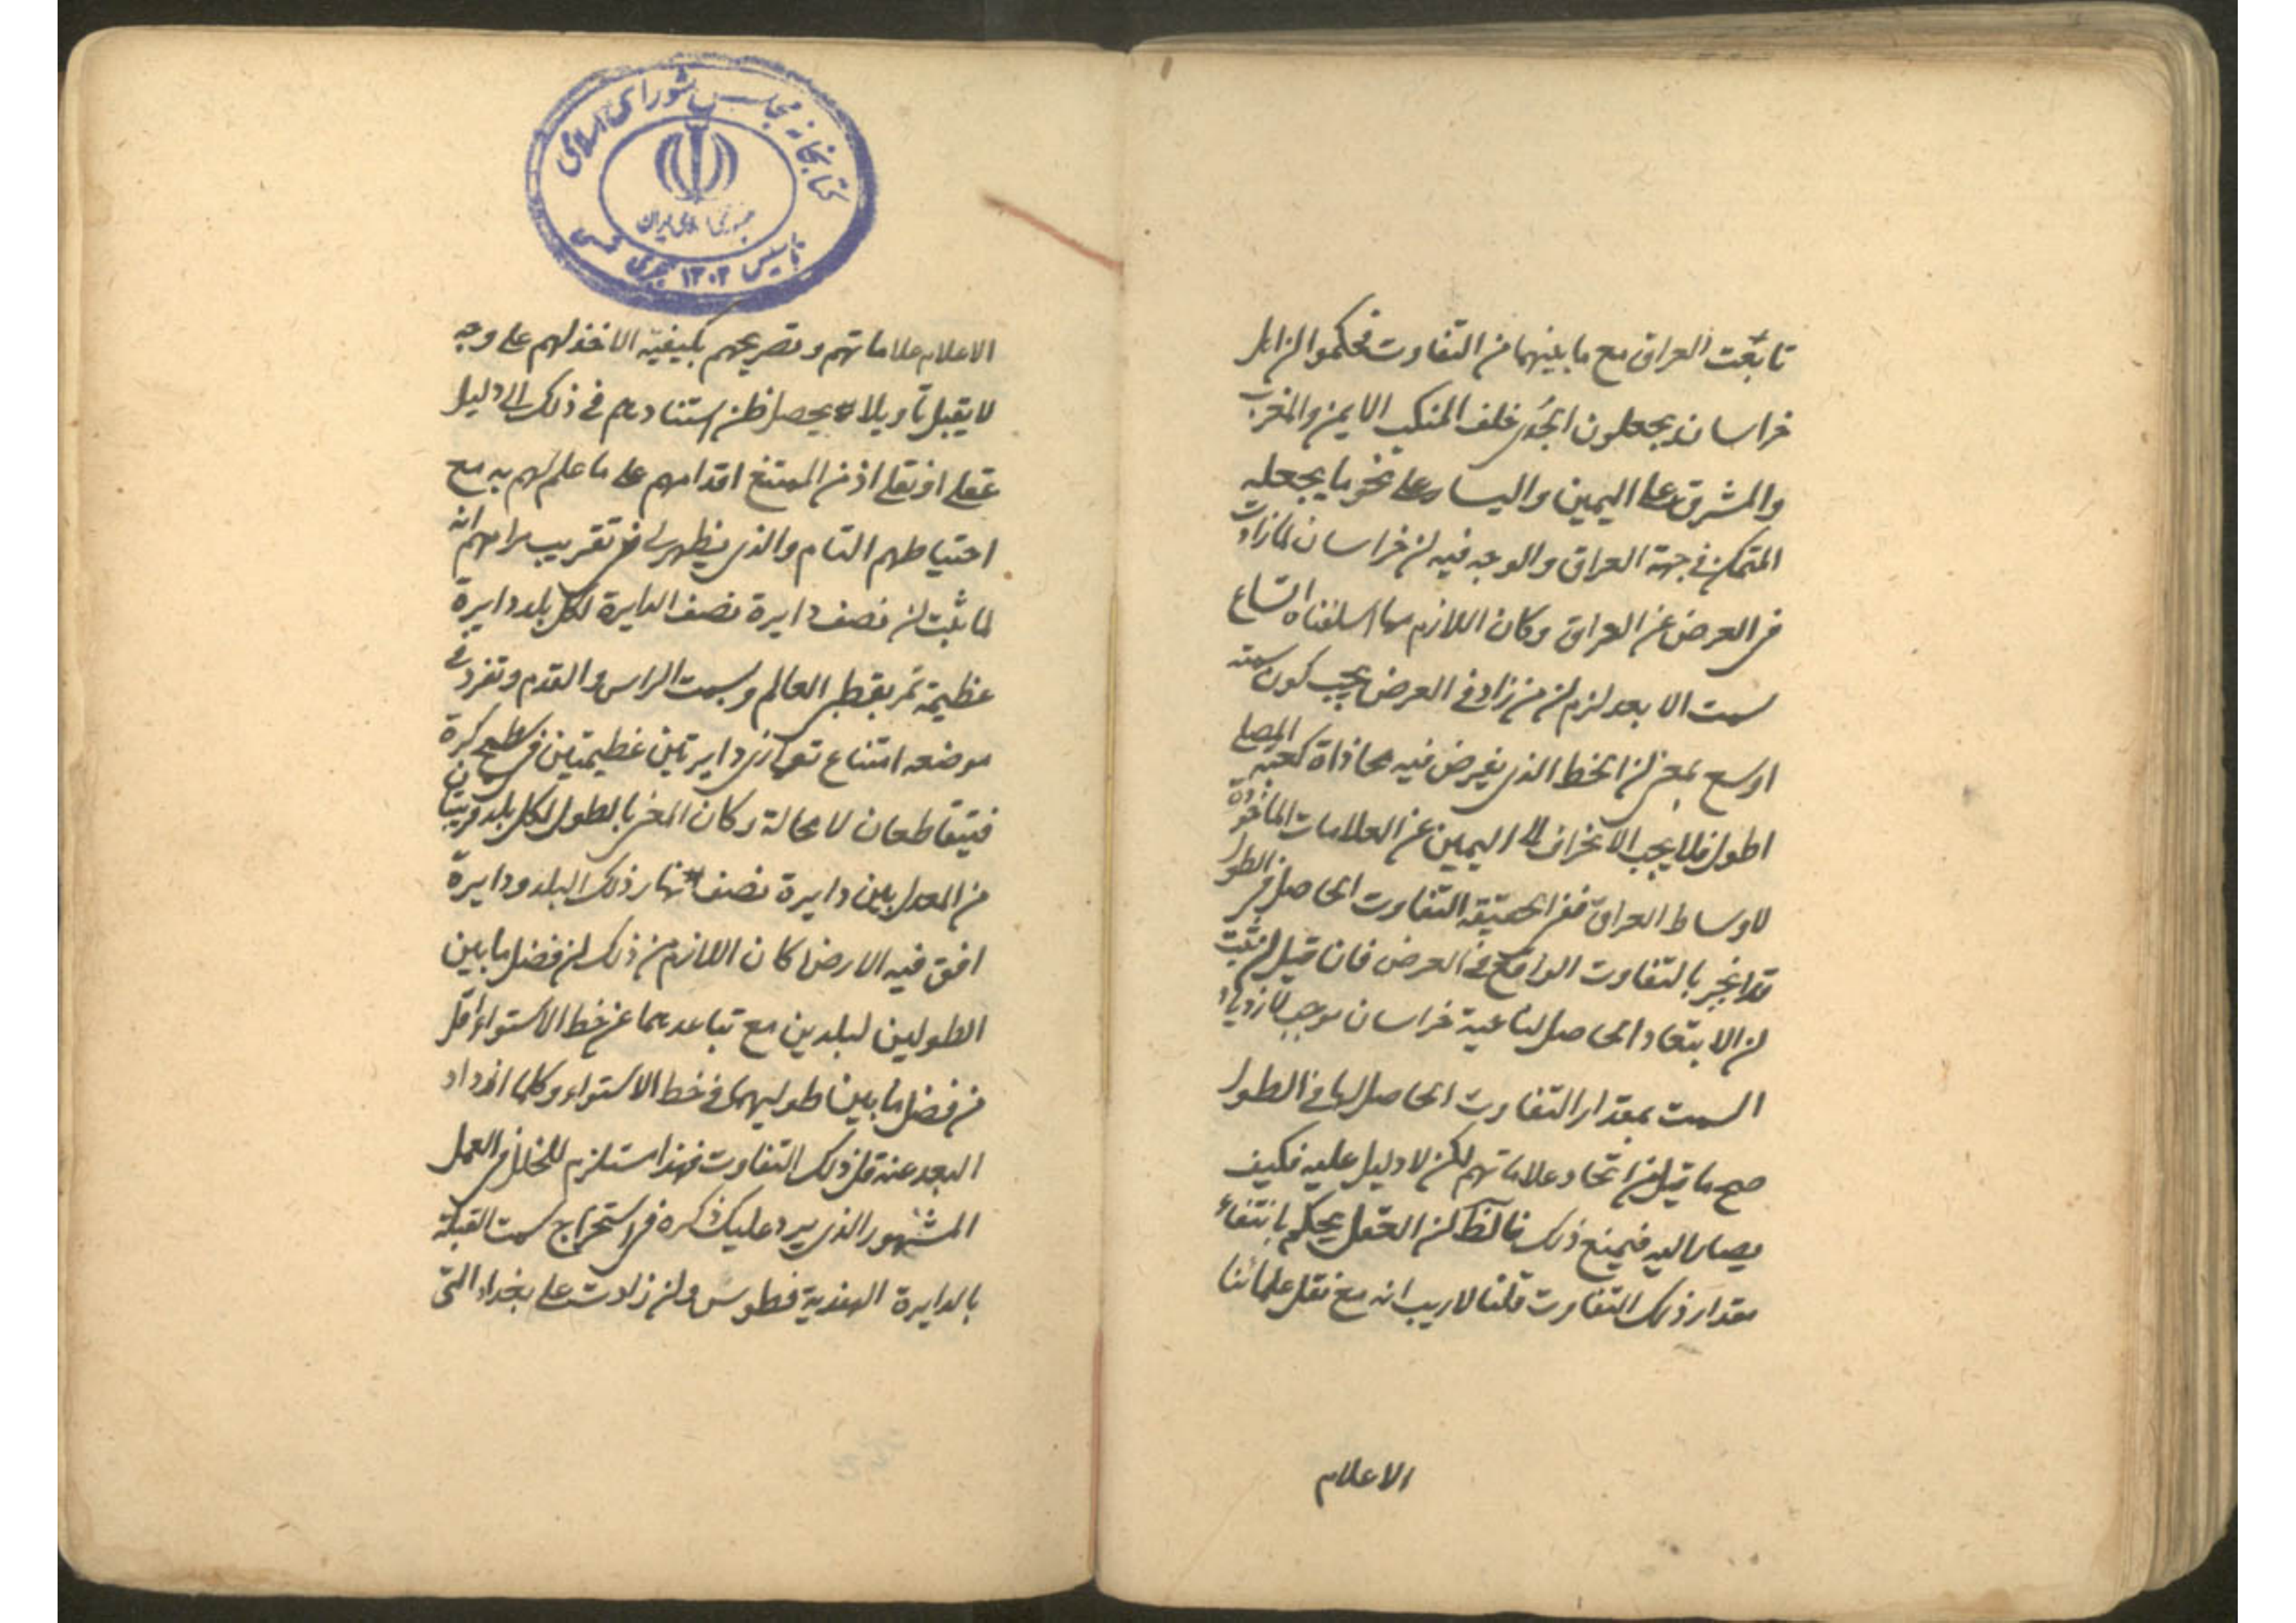 تابعت العراق مع ما بينهما من التفاوت فحكموا ان اهل
خراسان يجعلون الجدي خلف المنكب الايمن والمغرب
والمشرق على اليمين واليسار على نحو ما يجعله
المتمكن في جهة العراق والوجه فيه ان خراسان لما زادت
في العرض عن العراق وكان اللازم مما اسلفناه اتساع
سمت الابعد لزم ان من زاد في العرض يجب كون سمته
اوسع بمعنى ان الخط الذي يفرض فيه محاذاة كعبة المصلي
اطول فلا يجب الانحراف الى اليمين عن العلامات الماخوذة
لاوساط العراق ففي الحقيقة التفاوت الحاصل في الطول
قد انجبر بالتفاوت الواقع في العرض فان قيل ان ثبت
ان الابتعاد الحاصل لناحية خراسان موجب لازدياد
السمت بمقدار التفاوت الحاصل لها في الطول
صح ما قيل من اتحاد علاماتهم لكن لا دليل عليه فكيف
يصار اليه فيمنع ذلك العقل يحكم بانتفاء
مقدار ذلك التفاوت قلنا لا ريب انه مع نقل علمائنا
الاعلام
كتابخانه مجلس شورای اسلامی
جمهوری اسلامی ایران
تاسیس ۱۳۰۲ هجری شمسی
الاعلام علاماتهم وتصريحهم بكيفية الاخذ لهم على وجه
لا يقبل تأويلا يحصل ظن استنادهم في ذلك الى دليل
عقلي او نقلي اذ من الممتنع اقدامهم على ما علم لهم به مع
احتياطهم التام والذي يظهر لي في تقريب مرامهم انه
لما ثبت ان نصف دايرة نصف الدايرة لكل بلد دايرة
عظيمة تمر بقطبي العالم وبسمت الراس والقدم وتفرد في
موضعه امتناع توازي دايرتين عظيمتين في سطح كرة
فيتقاطعان لا محالة وكان المعني بالطول لكل بلد
من المعدل بين دايرة نصف نهار ذلك البلد ودايرة
افق فيه الارض كان اللازم من ذلك ان فضل ما بين
الطولين لبلدين مع تباعدهما عن خط الاستواء اقل
من فضل ما بين طوليهما في خط الاستواء وكلما ازداد
البعد عنه قل ذلك التفاوت فهذا مستلزم للخلل في العمل
المشهور الذي يرد عليك ذكره في استخراج سمت القبلة
بالدايرة الهندية فطوس وان زادت على بغداد التي